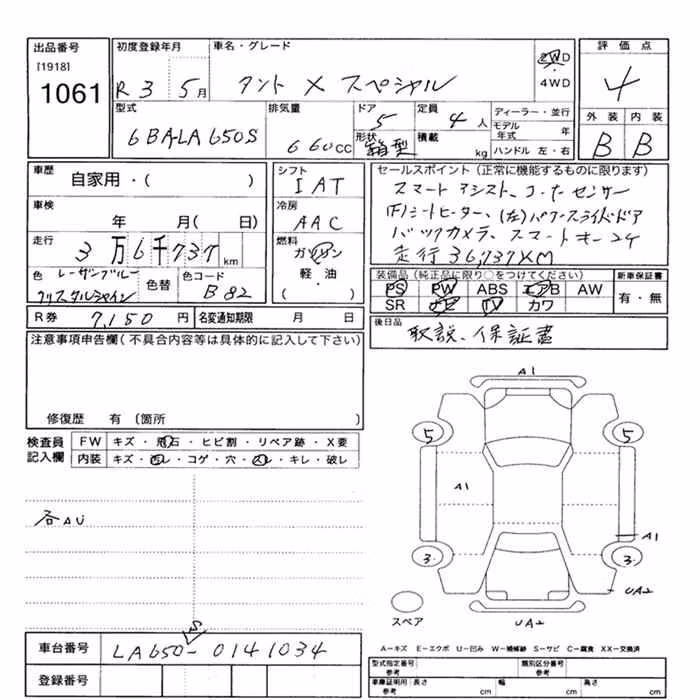 出品番号
[1918]
1061
初度登録年月
R 3 5月
車名・グレード
タント X スペシャル
2WD
・
4WD
評価点
4
型式
6BA-LA650S
排気量
660cc
ドア
5
形状
箱型
定員
4人
積載
kg
ディーラー・並行
モデル年式 年
ハンドル 左・右
外装 内装
B B
車歴
自家用・( )
車検
年 月( 日)
走行
3万6千737km
色
レーザーブルー
クリスタルシャイン
色替
色コード
B82
シフト
IAT
冷房
AAC
燃料
ガソリン
軽・油
( )
セールスポイント(正常に機能するものに限ります)
スマートアシスト、コーナーセンサー
(F)シートヒーター、(左)パワースライドドア
バックカメラ、スマートキー2ケ
走行36,737KM
装備品(純正品に限り○をつけてください)
PS PW ABS エアB AW
SR ナビ TV カワ
新車保証書
有・無
R券 7,150円
名変通知期限 月 日
後日品
取説、保証書
注意事項申告欄(不具合内容等は具体的に記入して下さい)
修復歴 有(箇所 )
検査員
記入欄
FW キズ・飛石・ヒビ割・リペア跡・X要
内装 キズ・汚レ・コゲ・穴・スレ・キレ・破レ
各AU
A1
5 5
A1
A1
3 3
UA2
スペア
UA2
S
車台番号 LA650-0141034
登録番号
A－キズ E－エクボ U－凹み W－補修跡 S－サビ C－腐食 XX－交換済
型式指定番号
参考
類別区分番号
参考
車庫証明用
参考
長さ cm 幅 cm 高さ cm